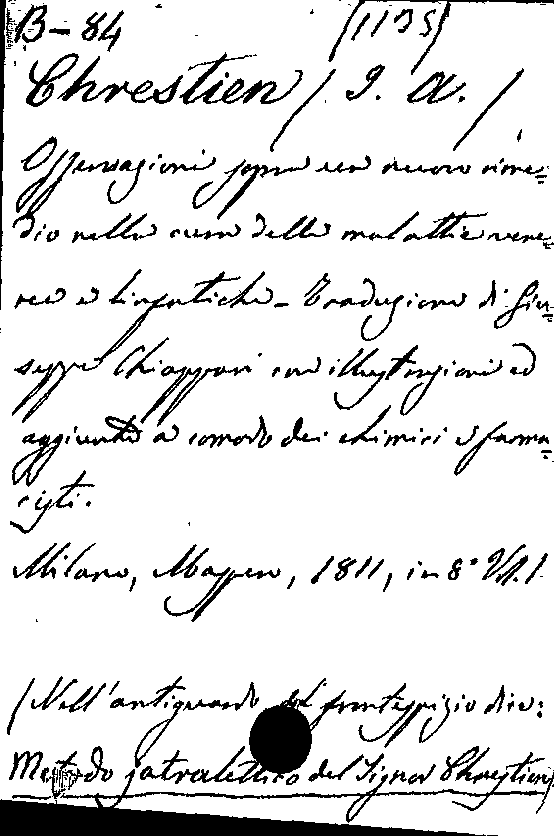 B-84 (1135)
Chrestien (J. A.)
Osservazioni sopra un nuovo rime=
dio nella cura delle malattie vene=
ree e linfatiche - Traduzione di Giu=
seppe Chiappari con illustrazioni ed
aggiunte a comodo dei chimici e farma=
cisti.
Milano, 1811, in 8° Vol. 1
(Nell'antiguardo del frontispizio dice:
Metodo jatralettico del Signor Chrestien)